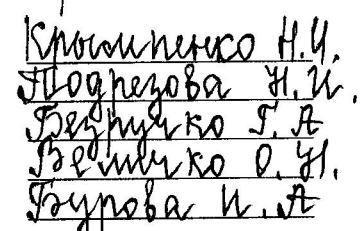 Крымпенко Н.И.
Подрезова Н.И.
Безручко Г.А
Величко О.Н.
Бурова И.А